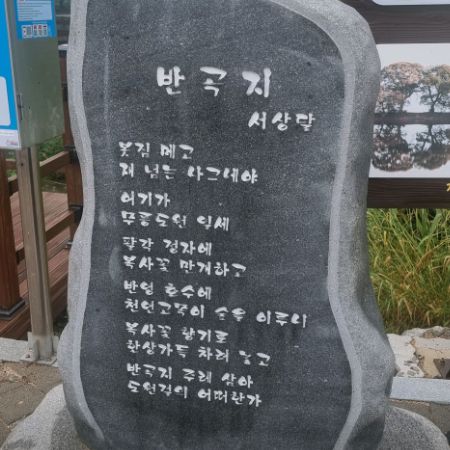 반곡지
서상달
봇짐 메고
재 넘는 나그네야
여기가
무릉도원 일세
팔각 정자에
복사꽃 만개하고
반영 호수에
천년고목이 숲을 이루니
복사꽃 향기로
한상가득 차려 놓고
반곡지 주례 삼아
도원결의 어떠한가